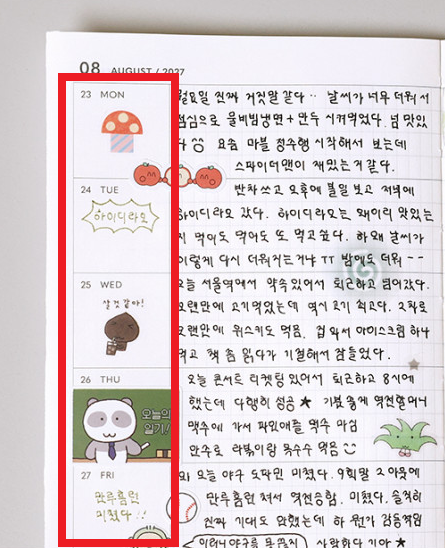 08 AUGUST / 2027
23 MON
월요일 진짜 거짓말 같다.. 날씨가 너무 더워서
점심으로 물비빔냉면 + 만두 시켜먹었다. 넘 맛있
다 요즘 마블 정주행 시작해서 보는데
스파이더맨이 재밌는거 같다.
24 TUE
하이디라오
반차 쓰고 오후에 볼일 보고 저녁에
하이디라오 갔다. 하이디라오는 왜이리 맛있는
지 먹어도 먹어도 또 먹고싶다. 하 왜 날씨가
이렇게 다시 더워지는거냐 TT 밤에도 더워 --
25 WED
살것 같아!
오늘 서울역에서 약속있어서 퇴근하고 넘어갔다.
오랜만에 고기먹었는데 역시 고기 최고다. 2차로
오랜만에 위스키도 먹음. 집 와서 아이스크림 하나
먹고 책 좀 읽다가 기절해서 잠들었다.
26 THU
오늘의
일기!
오늘 콘서트 티켓팅 있어서 퇴근하고 8시에
했는데 다행히 성공 ★ 기분 좋게 역전할머니
맥주에 가서 파인애플 맥주 마심
안주로 라볶이랑 옥수수 먹음
27 FRI
만루홈런
미쳤다..!!
와 오늘 야구 도파민 미쳤다. 9회말 2아웃에
만루홈런 쳐서 역전승함. 미쳤다. 솔직히
진짜 기대도 안했는데 하 뭔가 감동적임
이러니 야구를 못 끊지 사랑한다 기아 ★